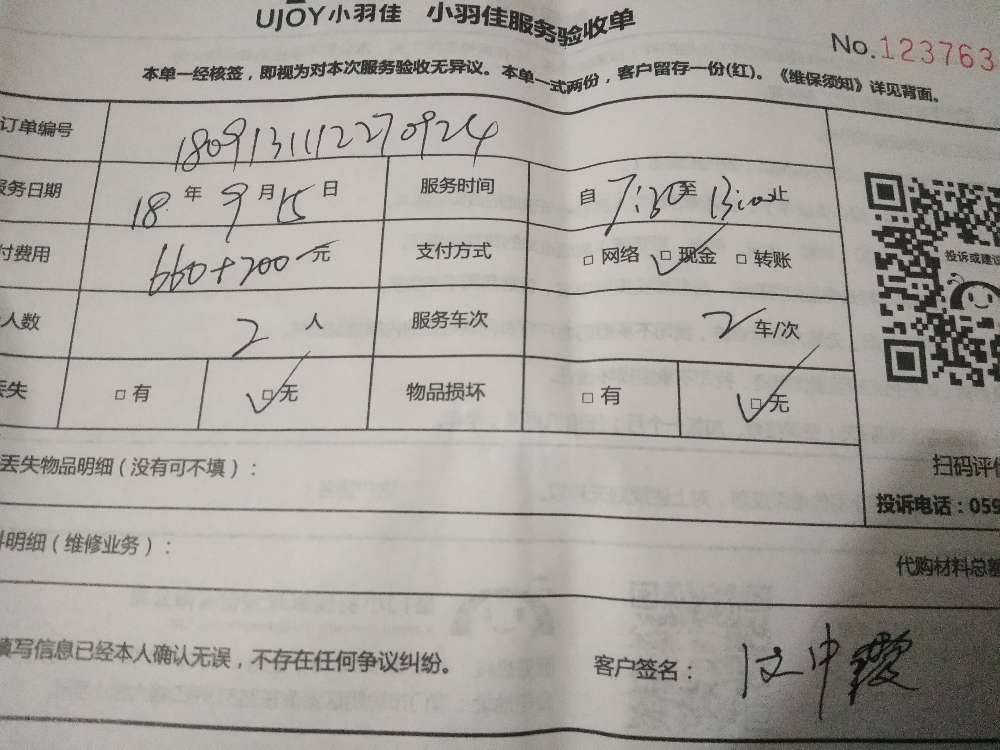 UJOY小羽佳 小羽佳服务验收单
No.123763
本单一经核签，即视为对本次服务验收无异议。本单一式两份，客户留存一份(红)。《维保须知》详见背面。
订单编号 1809131112270924
服务日期 18 年 9 月 15 日 服务时间 自 7:30 至 13:00 止
付费用 660+200 元 支付方式 □ 网络 □ 现金 □ 转账
人数 2 人 服务车次 2 车/次
丢失 □ 有 □ 无 物品损坏 □ 有 □ 无
投诉或建议
丢失物品明细（没有可不填）：
扫码评价
投诉电话：059
料明细（维修业务）：
代购材料总额
填写信息已经本人确认无误，不存在任何争议纠纷。 客户签名：